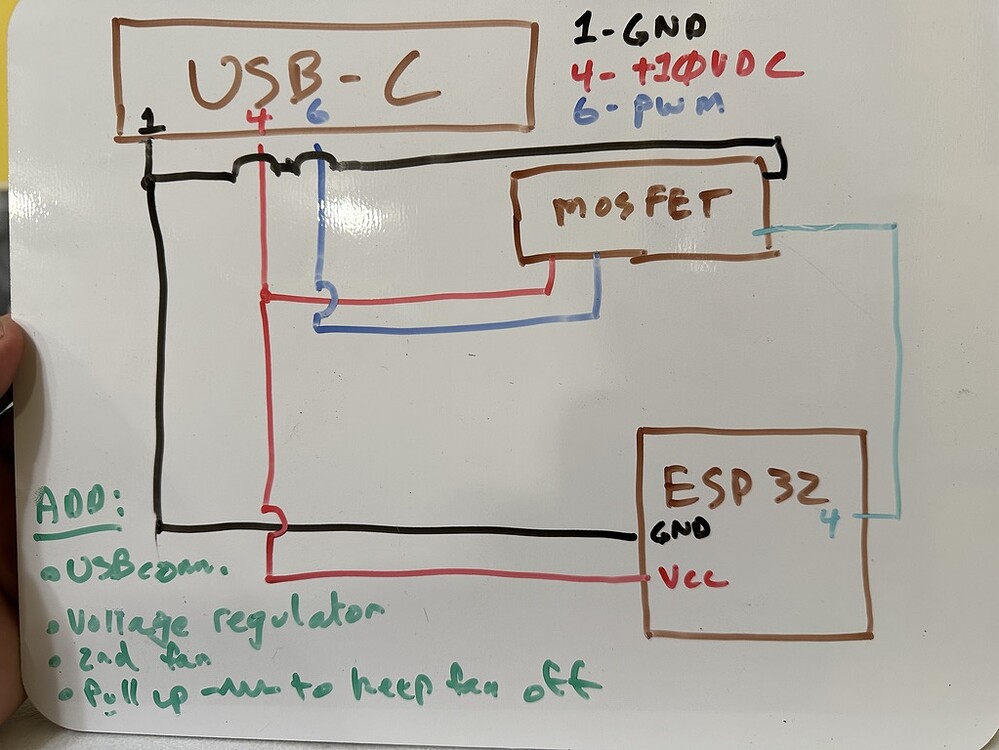 USB-C
1 4 6
1-GND
4-+10VDC
6-PWM
MOSFET
ESP32
4
GND
Vcc
ADD:
• USB conn.
• Voltage regulator
• 2nd fan
• Pull up to keep fan off